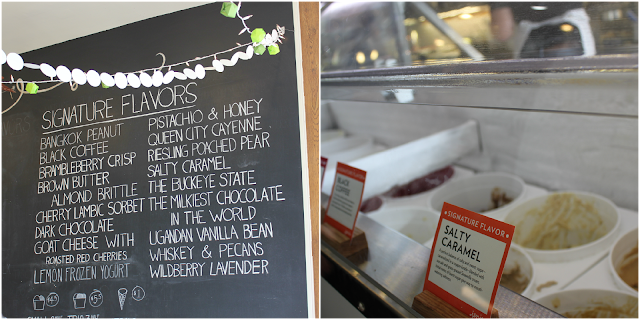 SIGNATURE FLAVORS
BANGKOK PEANUT
BLACK COFFEE
BRAMBLEBERRY CRISP
BROWN BUTTER
ALMOND BRITTLE
CHERRY LAMBIC SORBET
DARK CHOCOLATE
GOAT CHEESE WITH
ROASTED RED CHERRIES
LEMON FROZEN YOGURT
PISTACHIO & HONEY
QUEEN CITY CAYENNE
RIESLING POACHED PEAR
SALTY CARAMEL
THE BUCKEYE STATE
THE MILKIEST CHOCOLATE
IN THE WORLD
UGANDAN VANILLA BEAN
WHISKEY & PECANS
WILDBERRY LAVENDER
BLACK
COFFEE
SIGNATURE FLAVOR
SALTY
CARAMEL